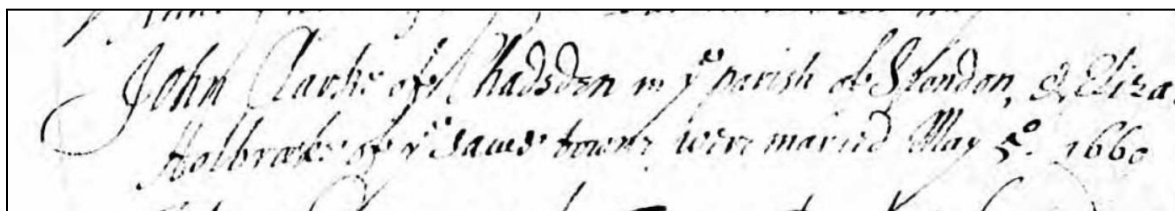 John Clarke of Chadsden in yᵉ parish of Spondon, & Eliza
Holbrooke of yᵉ same towne were maried May 5º. 1660